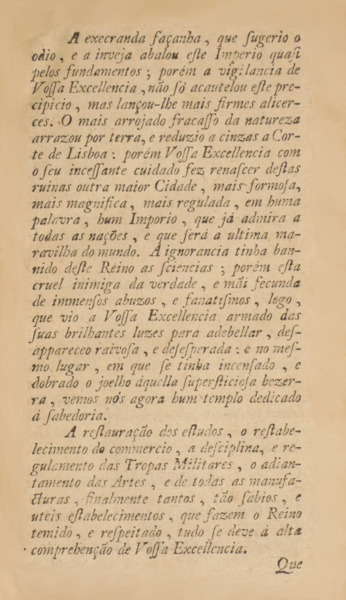 A execranda façanha, que sugerio o
odio, e a inveja abalou eſte Imperio quaſi
pelos fundamentos; porém a vigilancia de
Voſſa Excellencia, não ſó acautelou eſte pre-
cipicio, mas lançou-lhe mais firmes alicer-
ces. O mais arrojado fracaſſo da natureza
arrazou por terra, e reduzio a cinzas a Cor-
te de Lisboa: porém Voſſa Excellencia com
o ſeu inceſſante cuidado fez renaſcer deſtas
ruinas outra maior Cidade, mais formoſa,
mais magnifica, mais regulada, em huma
palavra, hum Imporio, que já admira a
todas as nações, e que ſerá a ultima ma-
ravilha do mundo. A ignorancia tinha ban-
nido deſte Reino as ſciencias; porém eſta
cruel inimiga da verdade, e mãi fecunda
de immenſos abuzos, e fanatiſmos, logo,
que vio a Voſſa Excellencia armado das
ſuas brilhantes luzes para adebellar, deſ-
appareceo raivoſa, e deſeſperada: e no meſ-
mo lugar, em que ſe tinha incenſado, e
dobrado o joelho áquella ſuperſticioſa bezer-
ra, vemos nós agora hum templo dedicado
á ſabedoria.
A reſtauração dos eſtudos, o reſtabe-
lecimento do commercio, a deſciplina, e re-
gulamento das Tropas Militares, o adian-
tamento das Artes, e de todas as manufa-
cturas, finalmente tantos, tão ſabios, e
uteis eſtabelecimentos, que fazem o Reino
temido, e reſpeitado, tudo ſe deve á alta
comprehenção de Voſſa Excellencia.
Que